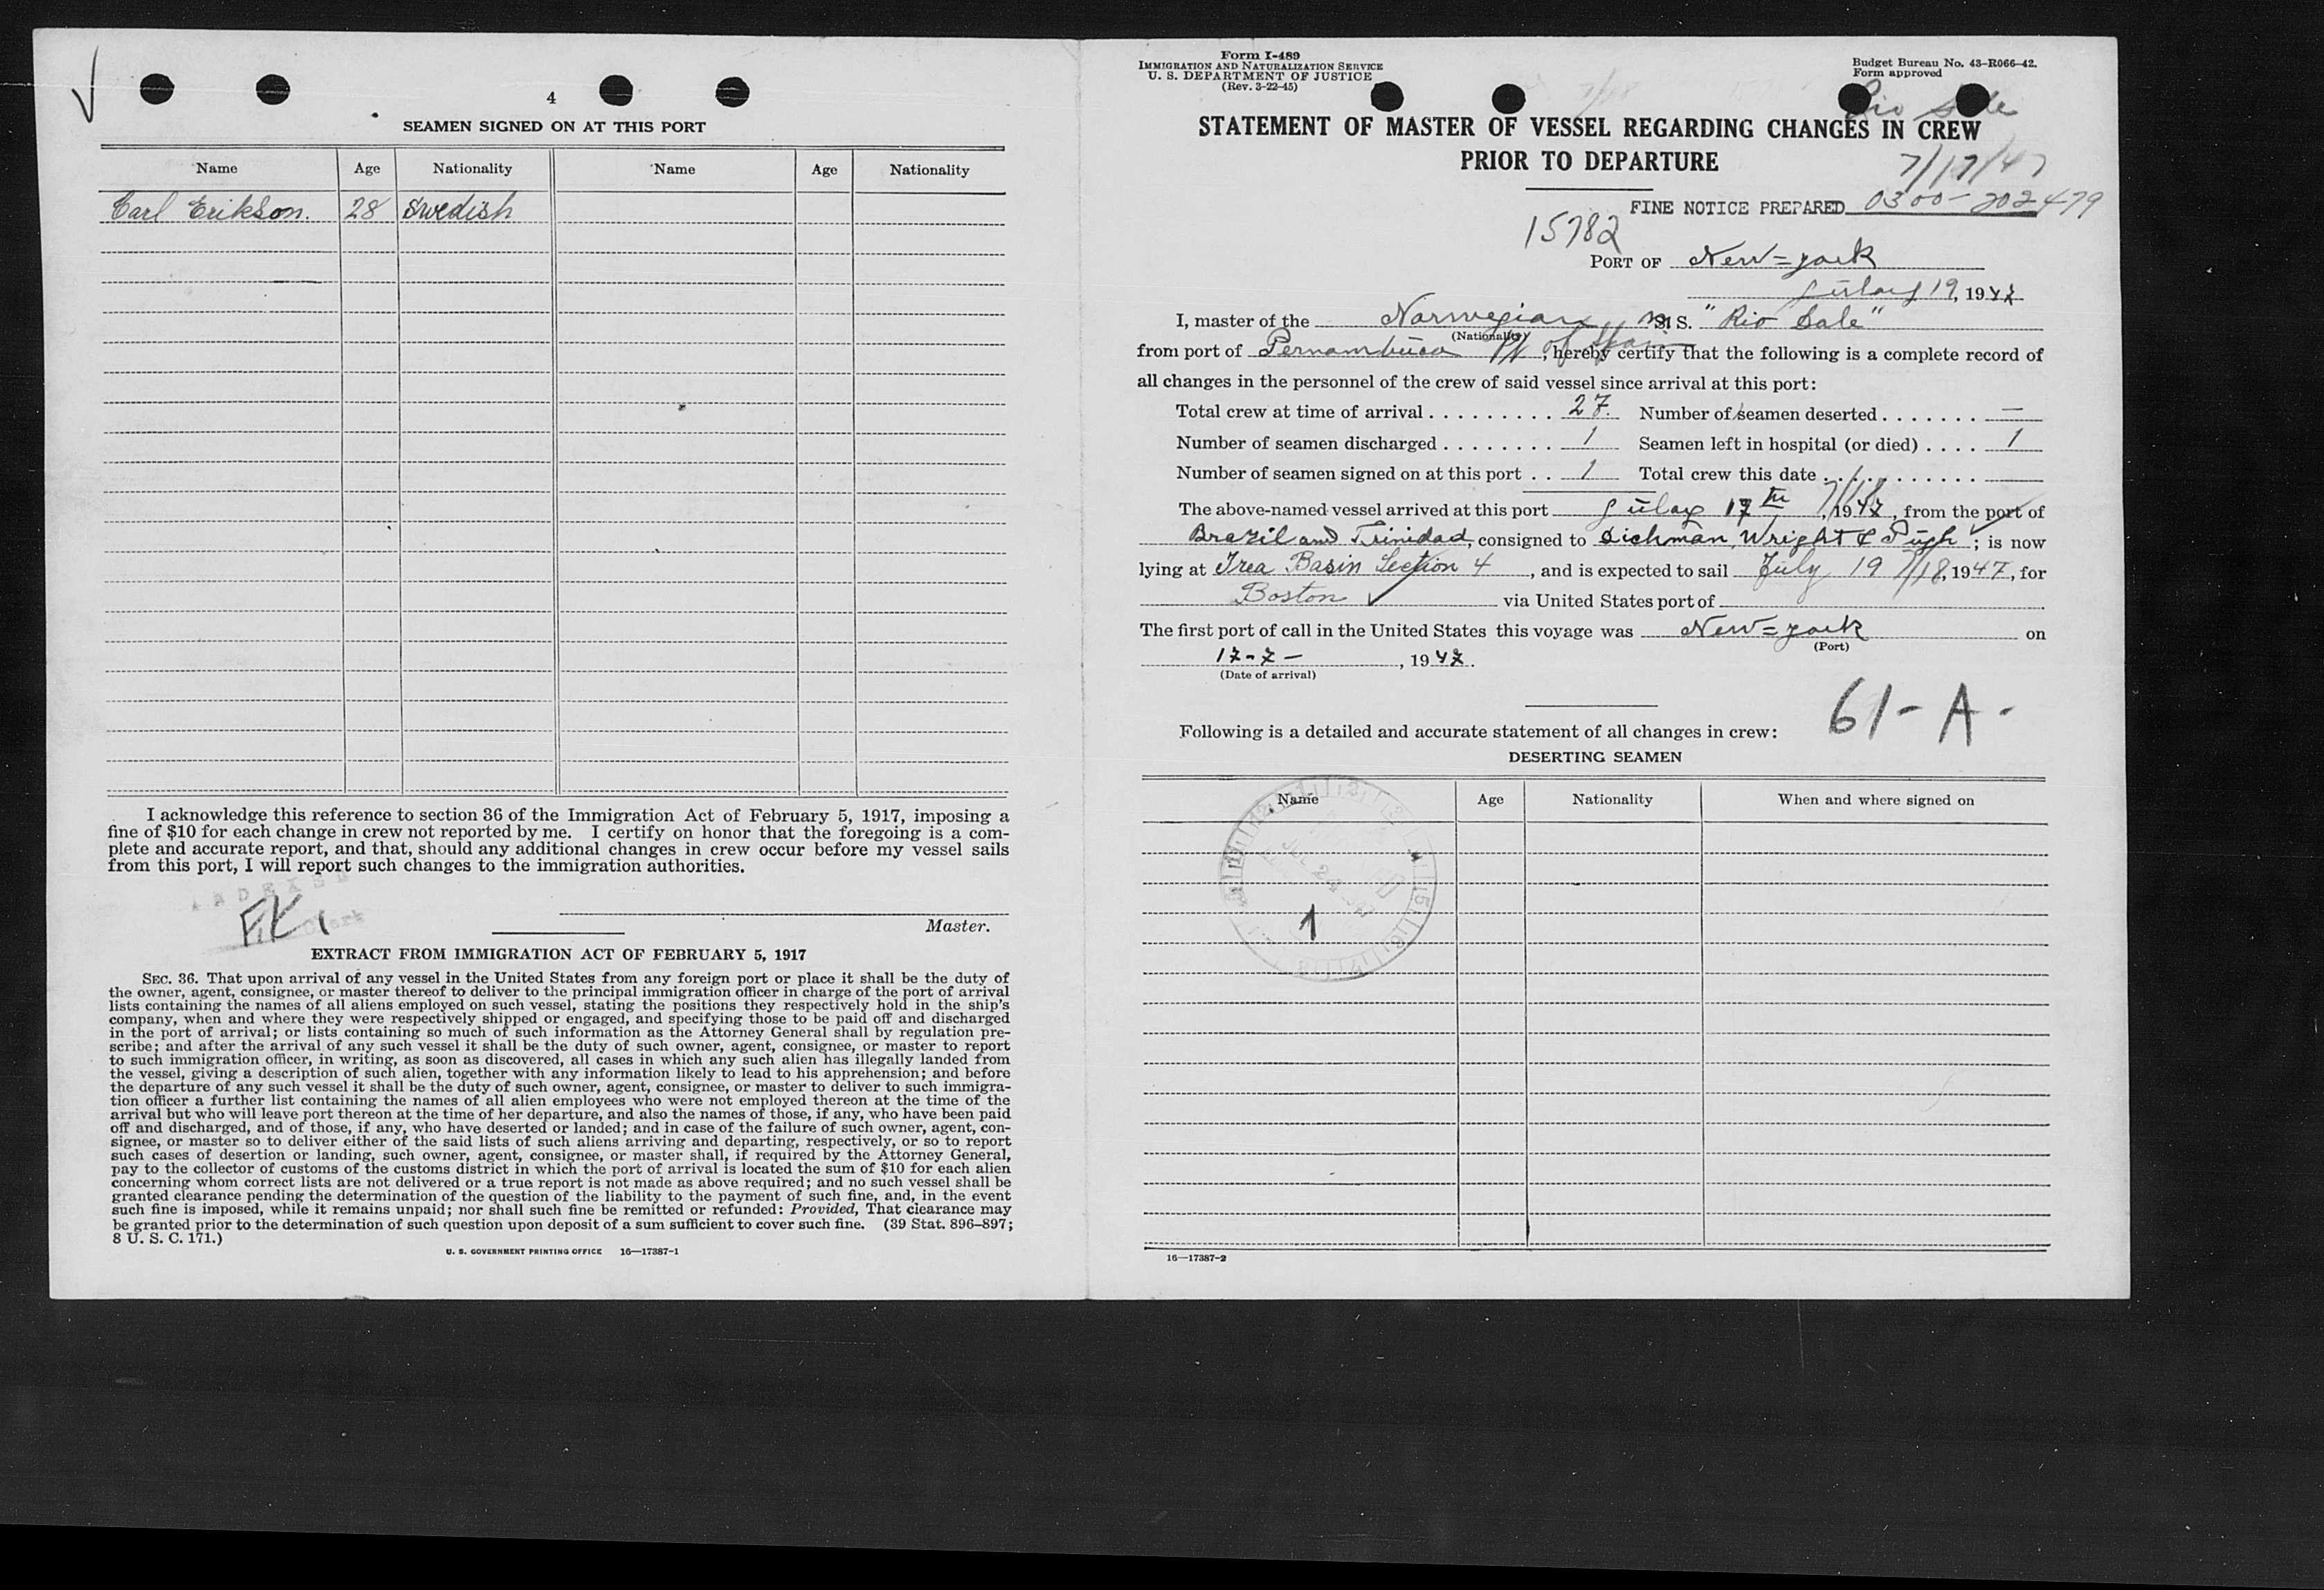 4
SEAMEN SIGNED ON AT THIS PORT
Name Age Nationality Name Age Nationality
Carl Erikson. 28 Swedish
I acknowledge this reference to section 36 of the Immigration Act of February 5, 1917, imposing a
fine of $10 for each change in crew not reported by me. I certify on honor that the foregoing is a com-
plete and accurate report, and that, should any additional changes in crew occur before my vessel sails
from this port, I will report such changes to the immigration authorities.
Master.
EXTRACT FROM IMMIGRATION ACT OF FEBRUARY 5, 1917
SEC. 36. That upon arrival of any vessel in the United States from any foreign port or place it shall be the duty of
the owner, agent, consignee, or master thereof to deliver to the principal immigration officer in charge of the port of arrival
lists containing the names of all aliens employed on such vessel, stating the positions they respectively hold in the ship's
company, when and where they were respectively shipped or engaged, and specifying those to be paid off and discharged
in the port of arrival; or lists containing so much of such information as the Attorney General shall by regulation pre-
scribe; and after the arrival of any such vessel it shall be the duty of such owner, agent, consignee, or master to report
to such immigration officer, in writing, as soon as discovered, all cases in which any such alien has illegally landed from
the vessel, giving a description of such alien, together with any information likely to lead to his apprehension; and before
the departure of any such vessel it shall be the duty of such owner, agent, consignee, or master to deliver to such immigra-
tion officer a further list containing the names of all alien employees who were not employed thereon at the time of the
arrival but who will leave port thereon at the time of her departure, and also the names of those, if any, who have been paid
off and discharged, and of those, if any, who have deserted or landed; and in case of the failure of such owner, agent, con-
signee, or master so to deliver either of the said lists of such aliens arriving and departing, respectively, or so to report
such cases of desertion or landing, such owner, agent, consignee, or master shall, if required by the Attorney General,
pay to the collector of customs of the customs district in which the port of arrival is located the sum of $10 for each alien
concerning whom correct lists are not delivered or a true report is not made as above required; and no such vessel shall be
granted clearance pending the determination of the question of the liability to the payment of such fine, and, in the event
such fine is imposed, while it remains unpaid; nor shall such fine be remitted or refunded: Provided, That clearance may
be granted prior to the determination of such question upon deposit of a sum sufficient to cover such fine. (39 Stat. 896–897;
8 U. S. C. 171.)
U. S. GOVERNMENT PRINTING OFFICE 16—17387-1
Form I-489
IMMIGRATION AND NATURALIZATION SERVICE
U. S. DEPARTMENT OF JUSTICE
(Rev. 3-22-45)
Budget Bureau No. 43-R066-42.
Form approved
STATEMENT OF MASTER OF VESSEL REGARDING CHANGES IN CREW
PRIOR TO DEPARTURE
7/17/47
FINE NOTICE PREPARED 0300-202479
15782
PORT OF New=york
19, 1947
I, master of the Norwegian S. "Rio Sale"
(Nationality)
from port of Pernambuco , hereby certify that the following is a complete record of
all changes in the personnel of the crew of said vessel since arrival at this port:
Total crew at time of arrival . . . . . . . . . 27. Number of seamen deserted . . . . . . . —
Number of seamen discharged . . . . . . . . 1 Seamen left in hospital (or died) . . . . 1
Number of seamen signed on at this port . . 1 Total crew this date . . . . . . . . . . .
The above-named vessel arrived at this port 17th 7/18, 1947, from the port of
Brazil and Trinidad, consigned to Dichman, Wright & Pugh ; is now
lying at Basin Section 4 , and is expected to sail July 19 7/18, 1947, for
Boston via United States port of
The first port of call in the United States this voyage was New=york on
(Port)
17-7- , 1947.
(Date of arrival)
61-A-
Following is a detailed and accurate statement of all changes in crew:
DESERTING SEAMEN
Name Age Nationality When and where signed on
1
16—17387-2